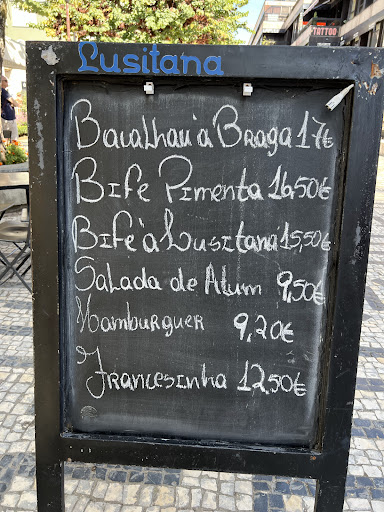 TATTOO
Lusitana
Bacalhau à Braga 17€
Bife Pimenta 16,50€
Bife à Lusitana 15,50€
Salada de Atum 9,50€
Hamburguer 9,20€
Francesinha 12,50€